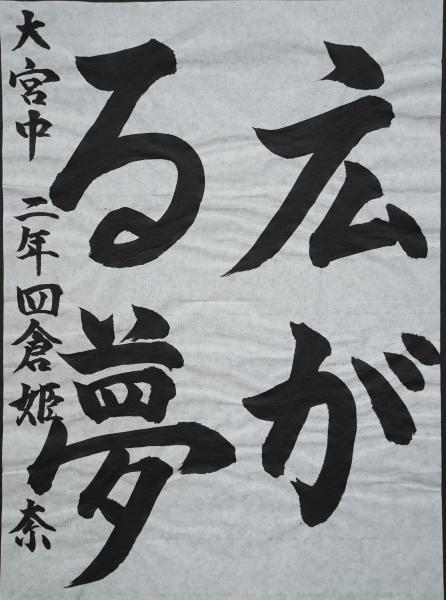 広が
る夢
大宮中 二年 四倉姫奈